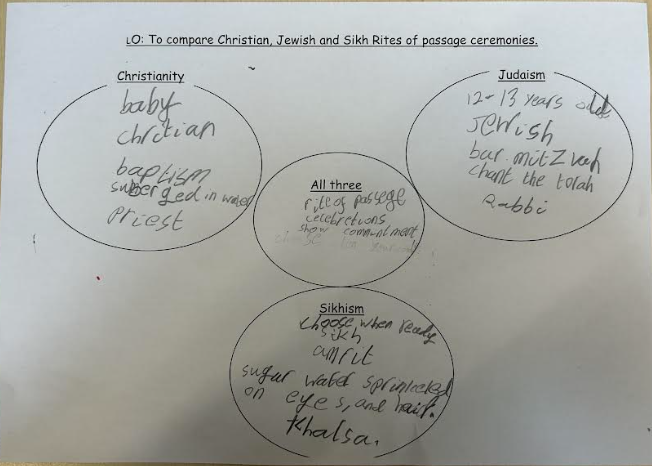 LO: To compare Christian, Jewish and Sikh Rites of passage ceremonies.
Christianity
baby
chritian
baptism
submerged in water
priest
Judaism
12-13 years old
Jewish
bar mitzvah
chant the torah
Rabbi
All three
rite of passage
celebrations
show commitment
Sikhism
choose when ready
sikh
amrit
sugar water sprinkled
on eyes, and hair.
Khalsa.